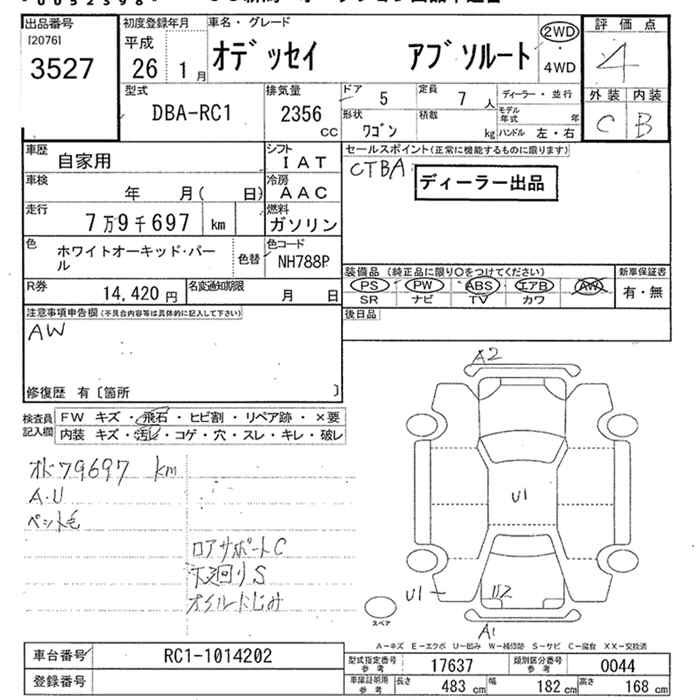 出品番号
I20761
3527
初度登録年月
平成
26 1月
車名・グレード
オデッセイ アブソルート
2WD
・
4WD
評価点
4
外装 内装
C B
型式
DBA-RC1
排気量
2356
CC
ドア
5
定員
7 人
ディーラー・並行
形状
ワゴン
積載
kg
モデル年式 年
ハンドル 左・右
車歴
自家用
シフト
IAT
車検
年 月( 日)
冷房
AAC
走行
7万9千697 km
燃料
ガソリン
色
ホワイトオーキッド・パール
色替
色コード
NH788P
R券
14,420 円
名変通知期限
月 日
セールスポイント(正常に機能するものに限ります)
CTBA
ディーラー出品
装備品(純正品に限り○をつけてください)
PS PW ABS エアB AW
SR ナビ TV カワ
新車保証書
有・無
後日品
注意事項申告欄(不具合内容等は具体的に記入して下さい)
AW
修復歴 有〔箇所 〕
検査員
記入欄
FW キズ・飛石・ヒビ割・リペア跡・×要
内装 キズ・汚レ・コゲ・穴・スレ・キレ・破レ
オド79697 km
A.U
ペット毛
ロアサポートC
下廻りS
オイルにじみ
A2
U1
U2
U1
A1
スペア
A-キズ E-エクボ U-凹み W-補修跡 S-サビ C-腐食 XX-交換済
車台番号
RC1-1014202
登録番号
型式指定番号
参考
17637
類別区分番号
参考
0044
車庫証明用
参考
長さ 483 cm
幅 182 cm
高さ 168 cm